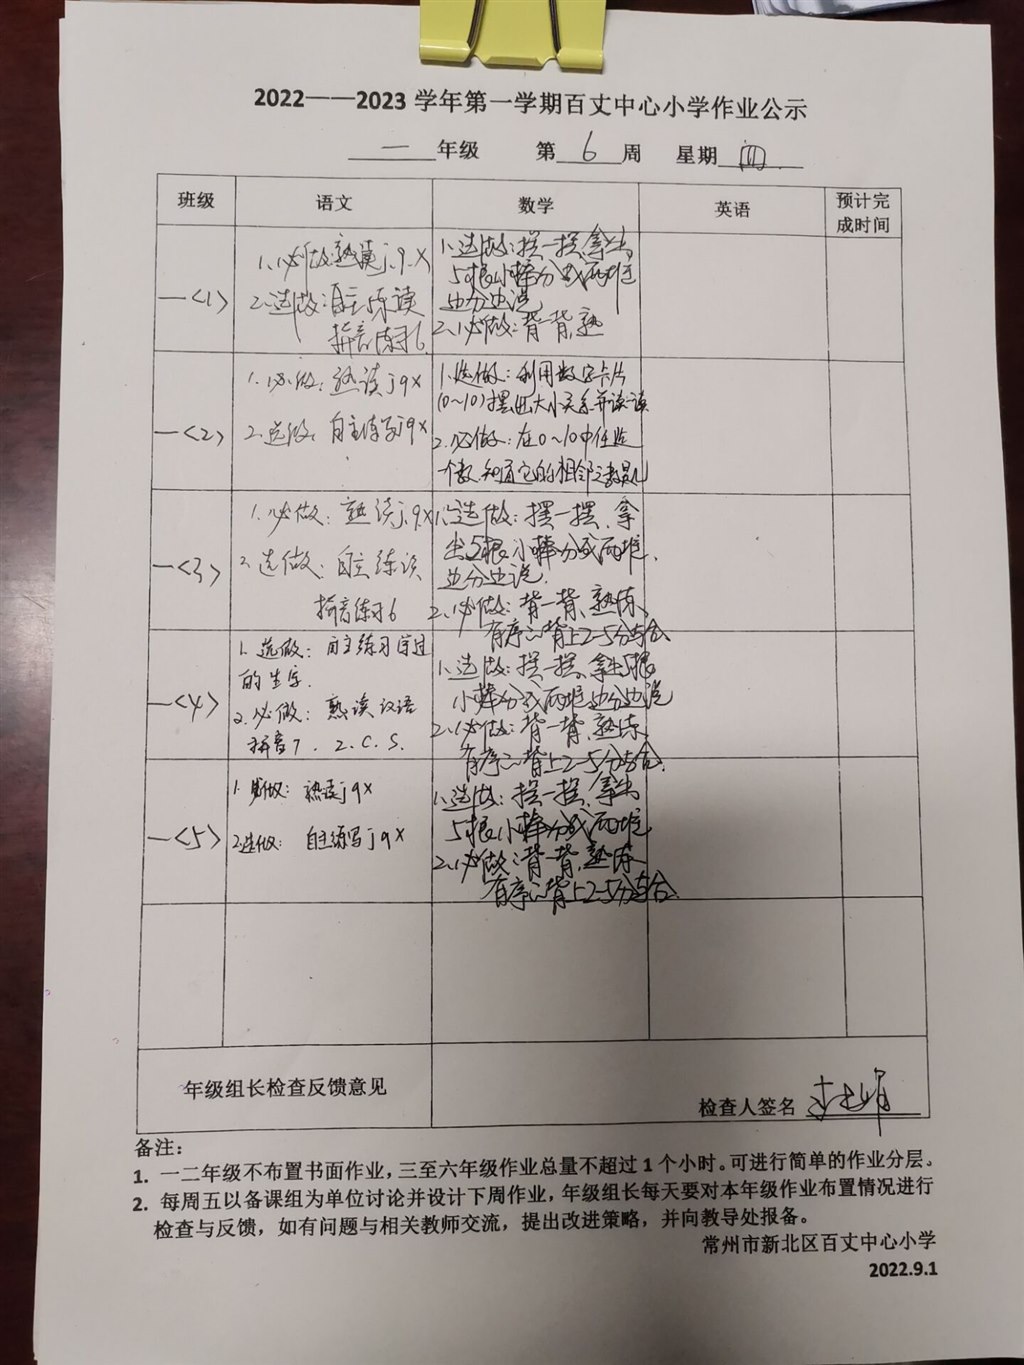 2022——2023 学年第一学期百丈中心小学作业公示
一 年级 第 6 周 星期 四
班级 语文 数学 英语 预计完成时间
一<1>
1.必做:熟读j.q.x
2.选做:自主练读
拼音练习6
1.选做:摆一摆,拿出
5根小棒分成两堆
边分边说
2.必做:背一背,熟
一<2>
1.必做:熟读jqx
2.选做:自主练写jqx
1.选做:利用数字卡片
(0~10)摆出大小关系并读一读
2.必做:在0~10中任选
一个数,知道它的相邻数是几
一<3>
1.必做:熟读j.qx
2.选做:自主练读
拼音练习6
1.选做:摆一摆,拿
出5根小棒分成两堆,
边分边说.
2.必做:背一背,熟练、
有序地背上2-5分与合
一<4>
1.选做:自主练习学过
的生字.
2.必做:熟读汉语
拼音7.z.c.s.
1.选做:摆一摆,拿出5根
小棒分成两堆边分边说
2.必做:背一背,熟练、
有序地背上2-5分与合.
一<5>
1.必做:熟读jqx
2.选做:自主练写jqx
1.选做:摆一摆,拿出
5根小棒分成两堆
2.必做:背一背,熟练、
有序地背上2-5分与合.
年级组长检查反馈意见
检查人签名
备注:
1. 一二年级不布置书面作业,三至六年级作业总量不超过 1 个小时。可进行简单的作业分层。
2. 每周五以备课组为单位讨论并设计下周作业,年级组长每天要对本年级作业布置情况进行
检查与反馈,如有问题与相关教师交流,提出改进策略,并向教导处报备。
常州市新北区百丈中心小学
2022.9.1